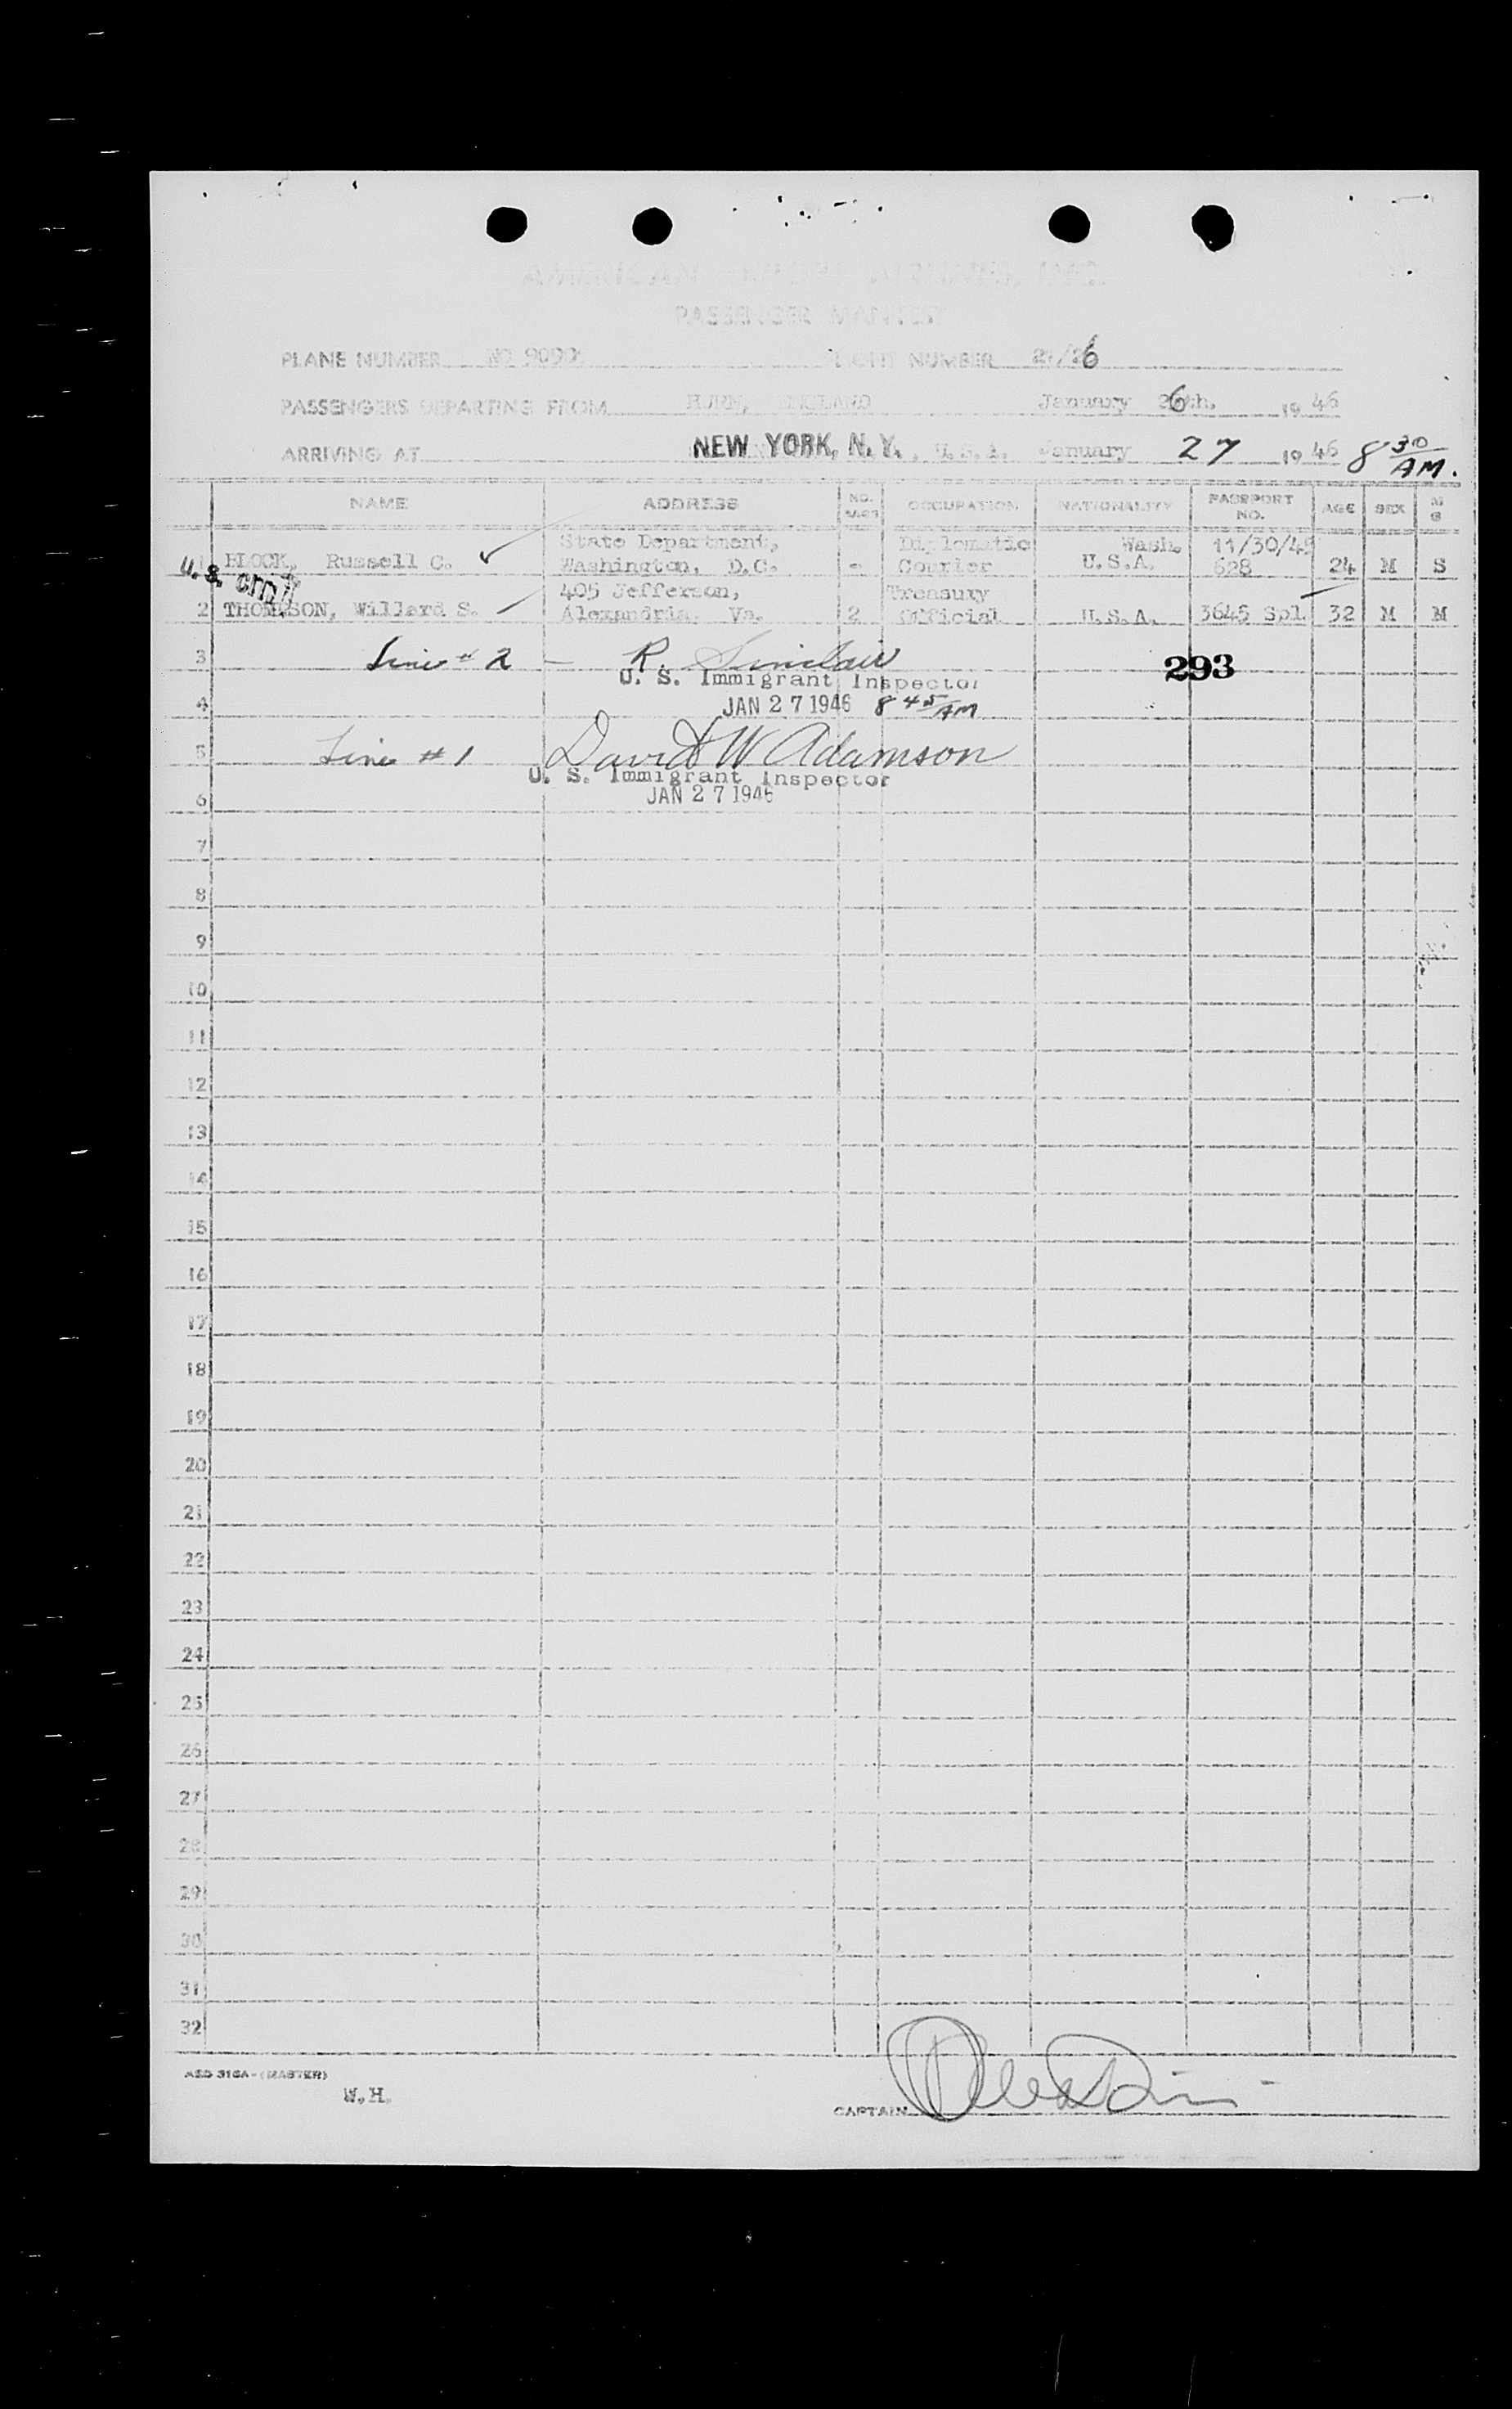 PASSENGER MANIFEST
PLANE NUMBER NC 90901 FLIGHT NUMBER 21/26
PASSENGERS DEPARTING FROM HURN, ENGLAND January 26th. 19 46
ARRIVING AT NEW YORK, N.Y. , U.S.A. January 27 19 46 8 30 AM.
NAME ADDRESS NO. OCCUPATION NATIONALITY PASSPORT NO. AGE SEX M S
State Department, Diplomatic Wash. 11/30/45
U.S. BLOCK, Russell C. ✓ Washington, D.C. - Courier U.S.A. 628 24 M S
405 Jefferson, Treasury
2 THOMPSON, Willard S. Alexandria, Va. 2 Official U.S.A. 3645 Spl. 32 M M
3 Line #2 — R. Sinclair 293
U. S. Immigrant Inspector
4 JAN 27 1946 8 45 AM
5 Line #1 David W Adamson
U. S. Immigrant Inspector
6 JAN 27 1946
7
8
9
10
11
12
13
14
15
16
17
18
19
20
21
22
23
24
25
26
27
28
29
30
31
32
AED 316A-(MASTER)
W.H.
CAPTAIN